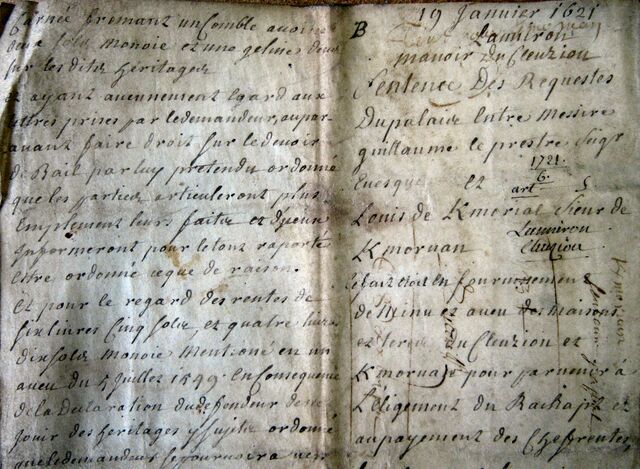 Carnee fremant un Comble avoine
deux sols monoie et une geline deub
sur les dits heritages
et ayant aucunement egard aux
lettres prises par le demandeur, aupar
avant faire droit sur le devoir
de Bail par luy pretendu ordonné
que les parties articuleront plus
Emplement leurs faits et
Informeront pour le tout raporté
Estre ordonné ce que de raison.
et pour le regard des rentes de
six livres Cinq sols, et quatre livres
dix sols monoie Mentioné en un
aveu du 5 Juillet 1549. En Consequence
de la Declaration du defendeur de
Jouir des heritages y sujets ordonné
que le demandeur se pourvoira
B
19 Janvier 1621
Lanniron
manoir Du Cleuziou
Sentence Des Requestes
Du palais Entre Messire
guillaume le prestre Seigr
Evesque Et
1721.
6.
art
Louis de Kmorial Sieur de
Kmorvan
Lanniron
Cluziou
le fait Estoit En fournissement
de Minu et aveu des maisons
et terres du Cleuziou et
Kmorvan pour parvenir à
l'Eligement du Rachapt et
au payement des Cheffrentes
Kmorvan